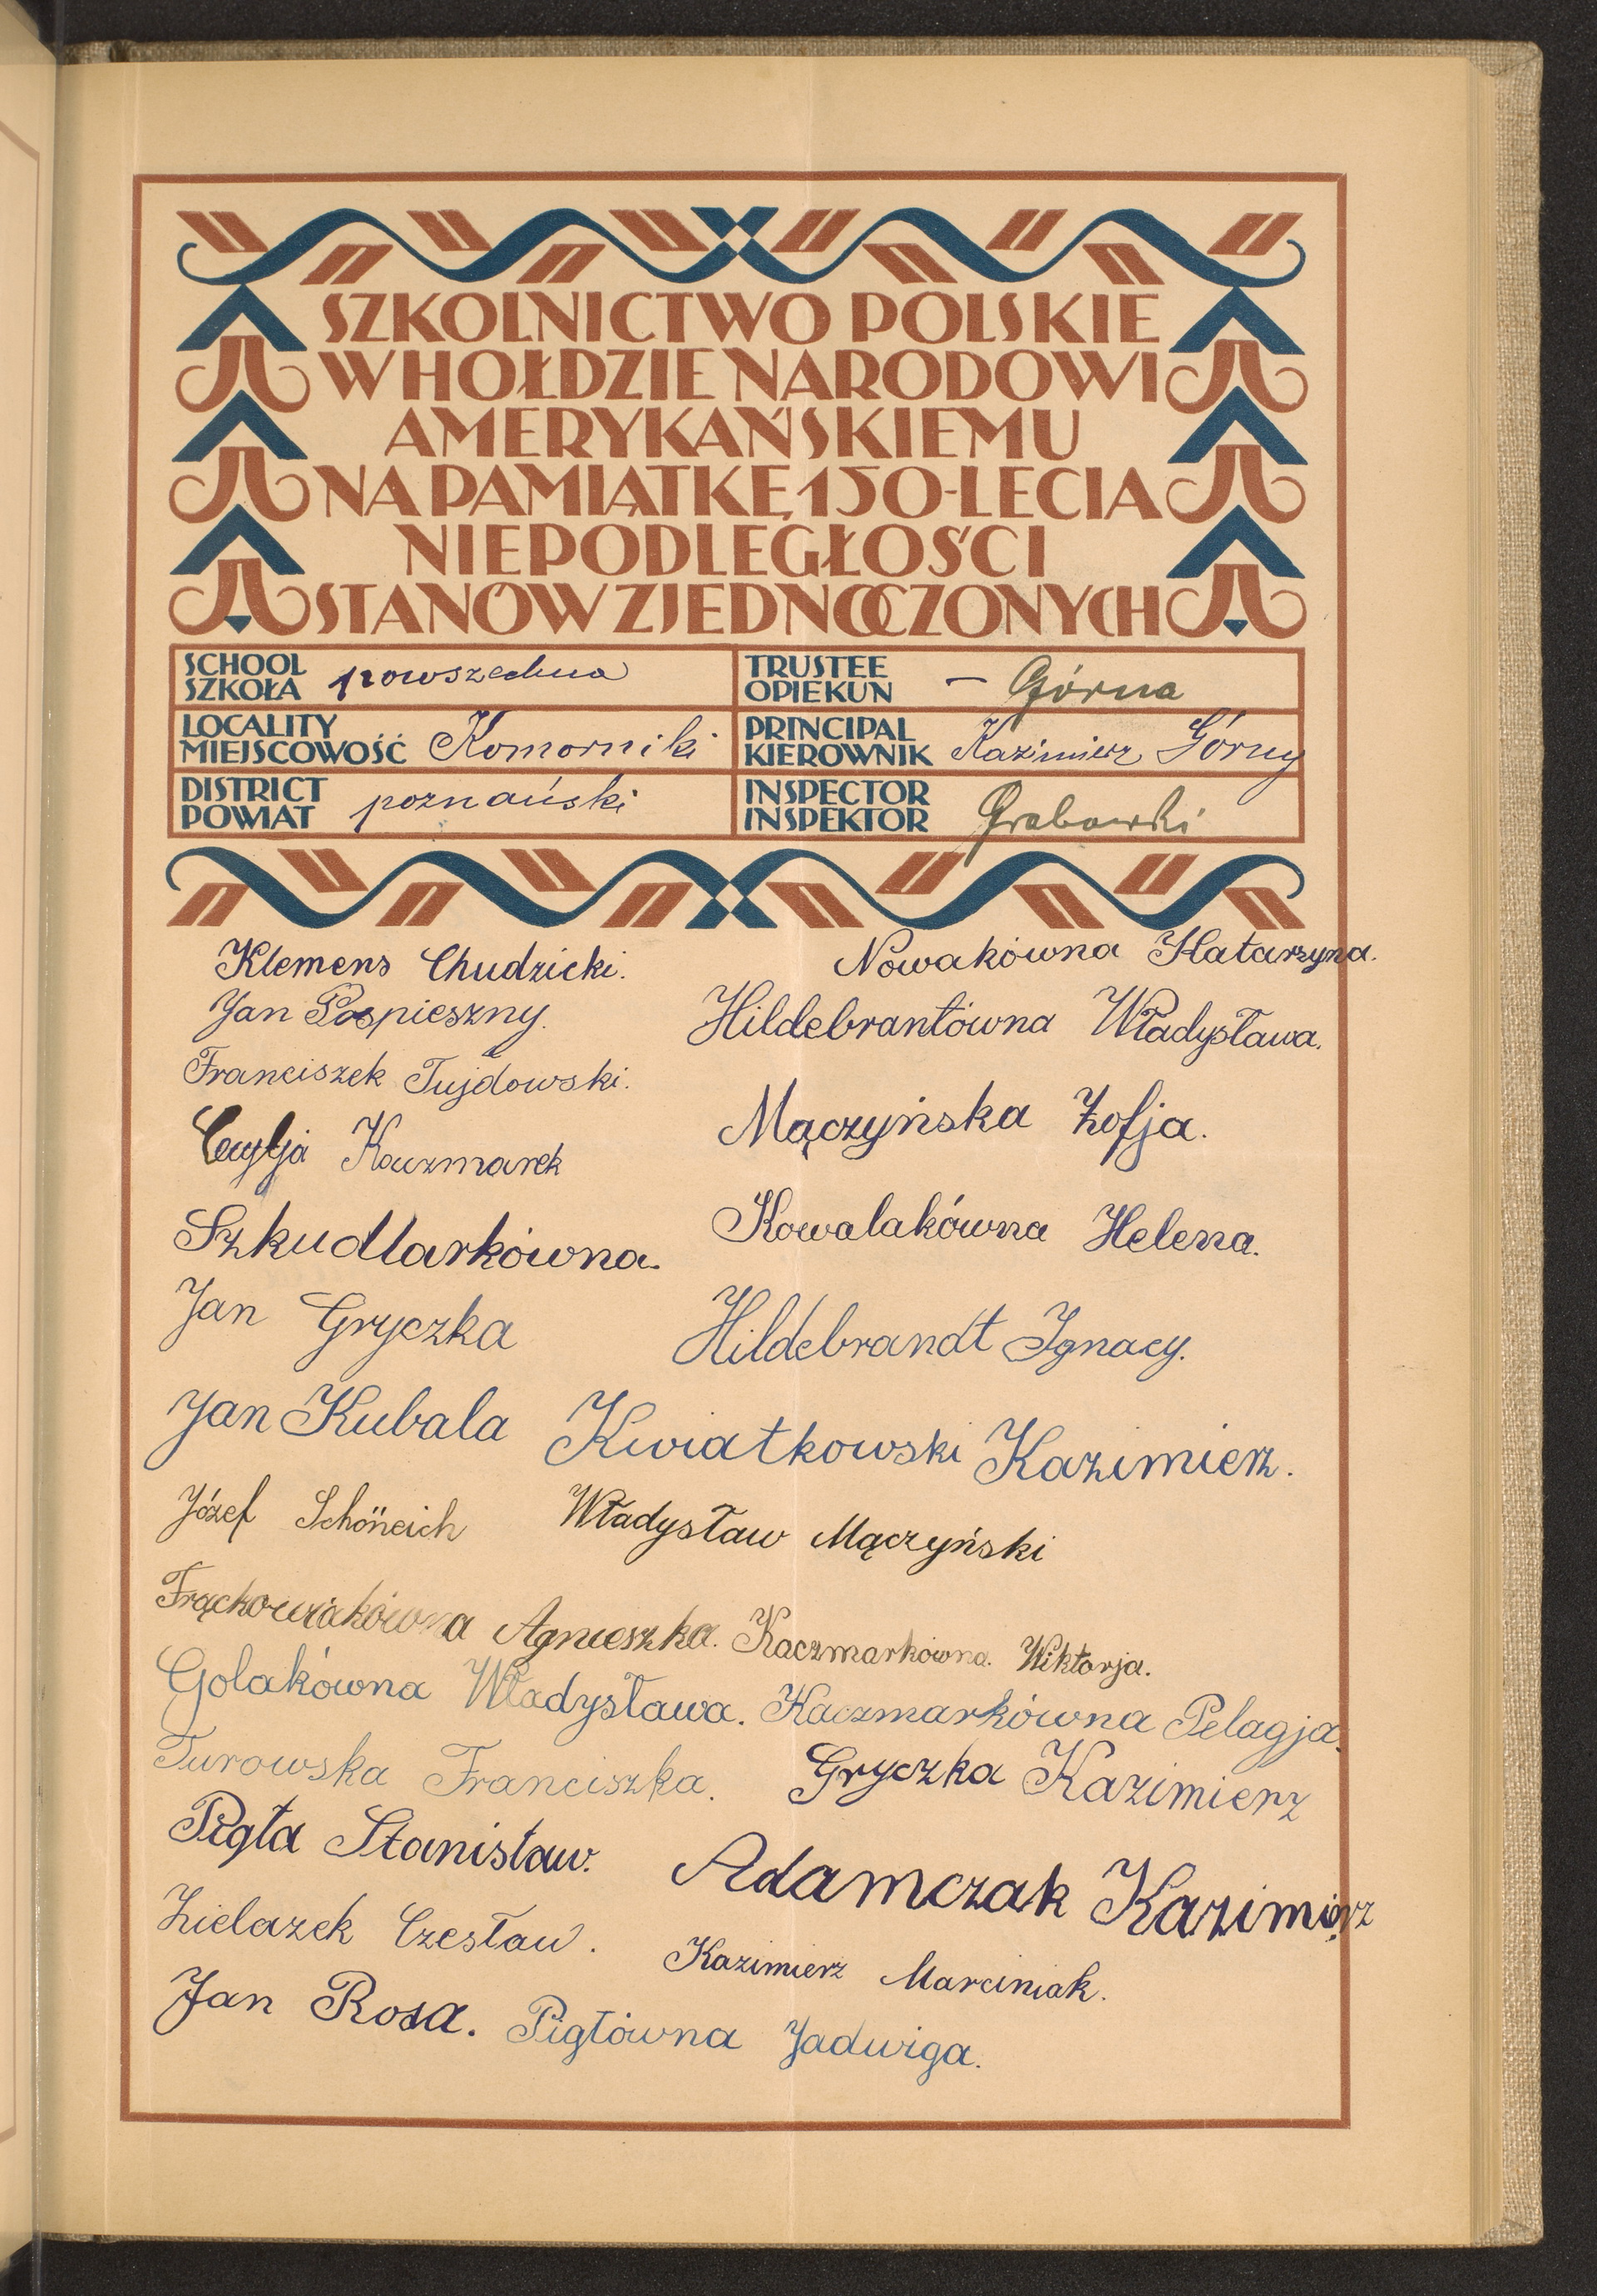 SZKOLNICTWO POLSKIE
W HOŁDZIE NARODOWI
AMERYKAŃSKIEMU
NA PAMIĄTKĘ 150-LECIA
NIEPODLEGŁOŚCI
STANÓW ZJEDNOCZONYCH
SCHOOL
SZKOŁA powszechna
TRUSTEE
OPIEKUN – Górna
LOCALITY
MIEJSCOWOŚĆ Komorniki
PRINCIPAL
KIEROWNIK Kazimierz Górny
DISTRICT
POWIAT poznański
INSPECTOR
INSPEKTOR Grabowski
Klemens Chudzicki.
Nowakówna Katarzyna.
Jan Pospieszny.
Hildebrantówna Władysława.
Franciszek Tujdowski.
Mączyńska Zofja.
Cecylja Kaczmarek
Kowalakówna Helena.
Szkudlarkówna.
Jan Gryczka
Hildebrandt Ignacy.
Jan Kubala Kwiatkowski Kazimierz.
Józef Schöneich Władysław Mączyński
Frąckowiakówna Agnieszka. Kaczmarkówna. Wiktorja.
Golakówna Władysława. Kaczmarkówna Pelagja.
Turowska Franciszka. Gryczka Kazimierz
Pigła Stanisław. Adamczak Kazimierz
Zielazek Czesław. Kazimierz Marciniak.
Jan Rosa. Pigłówna Jadwiga.